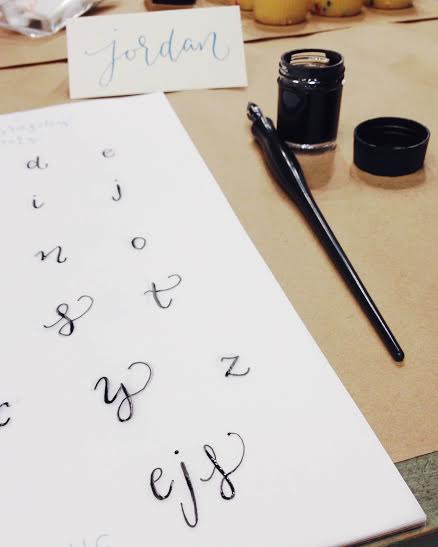 jordan
d e
i j
n o
s t
c y z
ejs